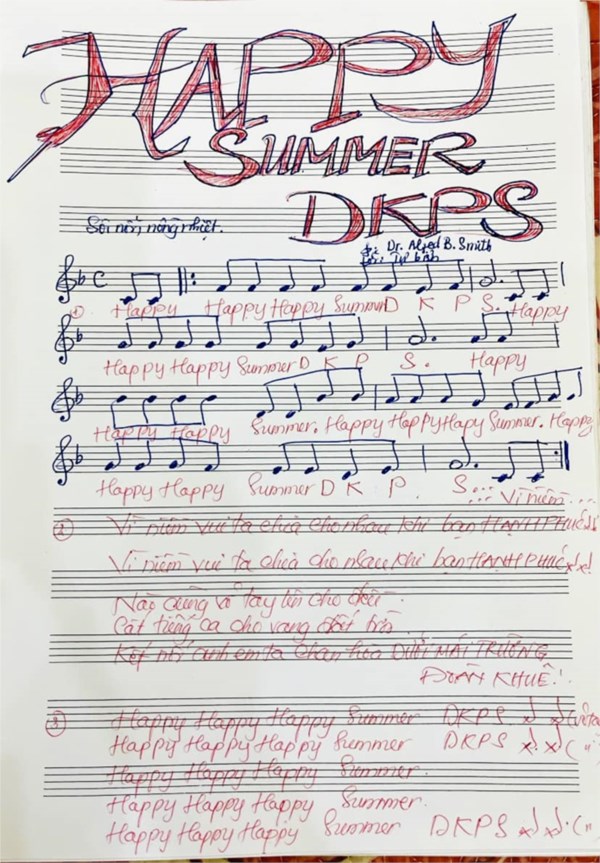 HAPPY
SUMMER
DKPS
Sôi nổi, nồng nhiệt.
Dr. Alfred B. Smith
Lời:
C
① Happy Happy Happy Summer D K P S. Happy
Happy Happy Summer D K P S. Happy
Happy Happy Summer. Happy Happy Hapy Summer. Happy
Happy Happy Summer D K P. S... Vì niềm...
② Vì niềm vui ta chia cho nhau khi bạn HẠNH PHÚC
Vì niềm vui ta chia cho nhau khi bạn HẠNH PHÚC
Nào cùng vỗ tay lên cho đều
Cất tiếng ca cho vang đất trời
Kết nối anh em ta chan hòa DƯỚI MÁI TRƯỜNG
ĐOÀN KHUÊ!
③ Happy Happy Happy Summer DKPS
Happy Happy Happy Summer DKPS
Happy Happy Happy Summer.
Happy Happy Happy Summer.
Happy Happy Happy Summer DKPS